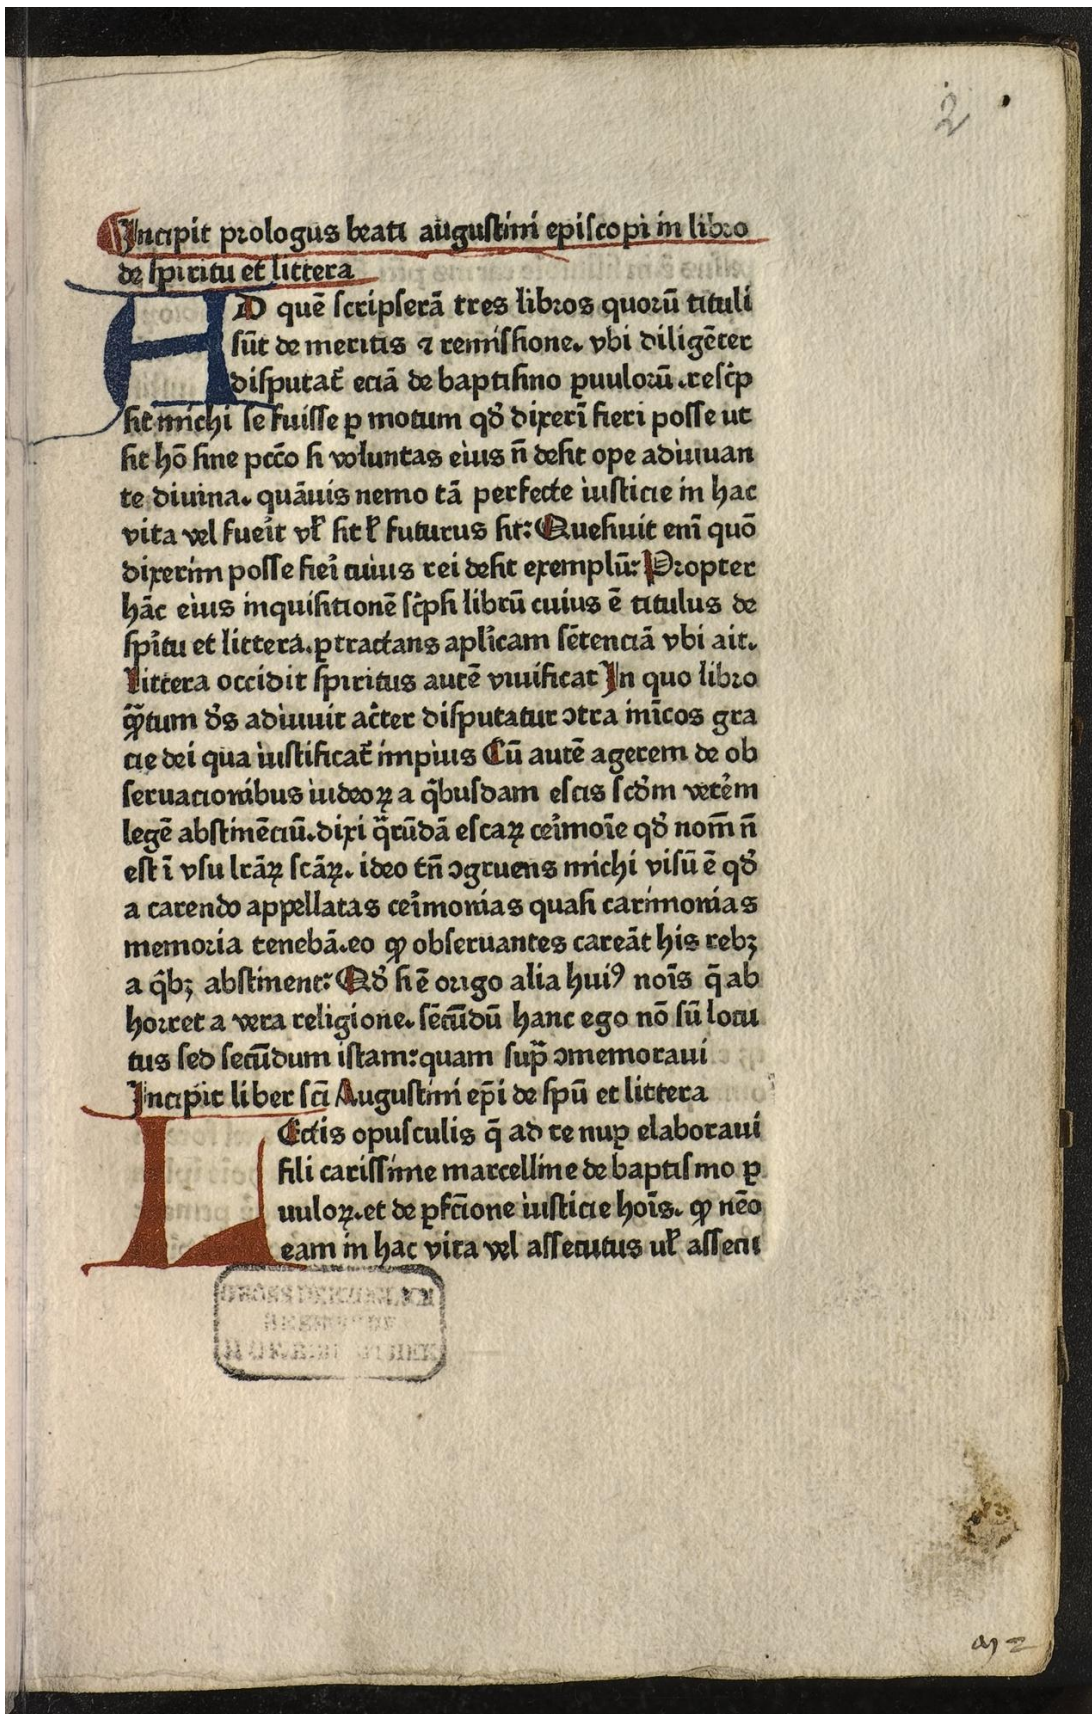 2
Incipit prologus beati augustini episcopi in libro
de spiritu et littera
AD quē scripserā tres libros quorū tituli
sūt de meritis ⁊ remissione. vbi diligēter
disputat̄ eciā de baptismo ꝑuulorū .rescͥp
sit michi se fuisse ꝑ motum qđ dixerī fieri posse ut
sit hō sine pctō si voluntas eius n̄ desit ope adiuuan
te diuina. quāuis nemo tā perfecte iusticie in hac
vita vel fueīt vƚ sit ƚ futurus sit: Quesiuit enī quō
dixerim posse fieī cuius rei desit exemplū: Propter
hāc eius inquisitionē scͥpsi librū cuius ē titulus de
spītu et littera.ꝑtractans aplīcam sētenciā vbi ait.
Littera occidit spiritus autē viuificat In quo libro
qͣ̄tum đs adiuuit acͥter disputatur ↄtra inīcos gra
cie dei qua iustificat̄ impius Cū autē agerem de ob
seruacionibus iudeoꝝ a qͥbusdam escis scđm vetēm
legē abstinēciū.dixi qͣrūdā escaꝝ ceīmoīe qđ nom̄ n̄
est ī vsu lrāꝝ scāꝝ. ideo tn̄ ↄgruens michi visū ē qđ
a carendo appellatas ceīmonias quasi carimonias
memoria tenebā.eo ꝙ obseruantes careāt his rebꝫ
a qͥbꝫ abstinent: Qđ si ē origo alia huiꝰ noīs q̄ ab
horret a vera religione. secūdū hanc ego nō sū locu
tus sed secūdum istam:quam supͣ ↄmemoraui
Incipit liber scī Augustini ep̄i de spū et littera
LEctis opusculis q̄ ad te nuꝑ elaboraui
fili carissime marcelline de baptismo ꝑ
uuloꝝ.et de ꝑfcīone iusticie hoīs. ꝙ nēo
eam in hac vita vel assecutus uƚ assecu